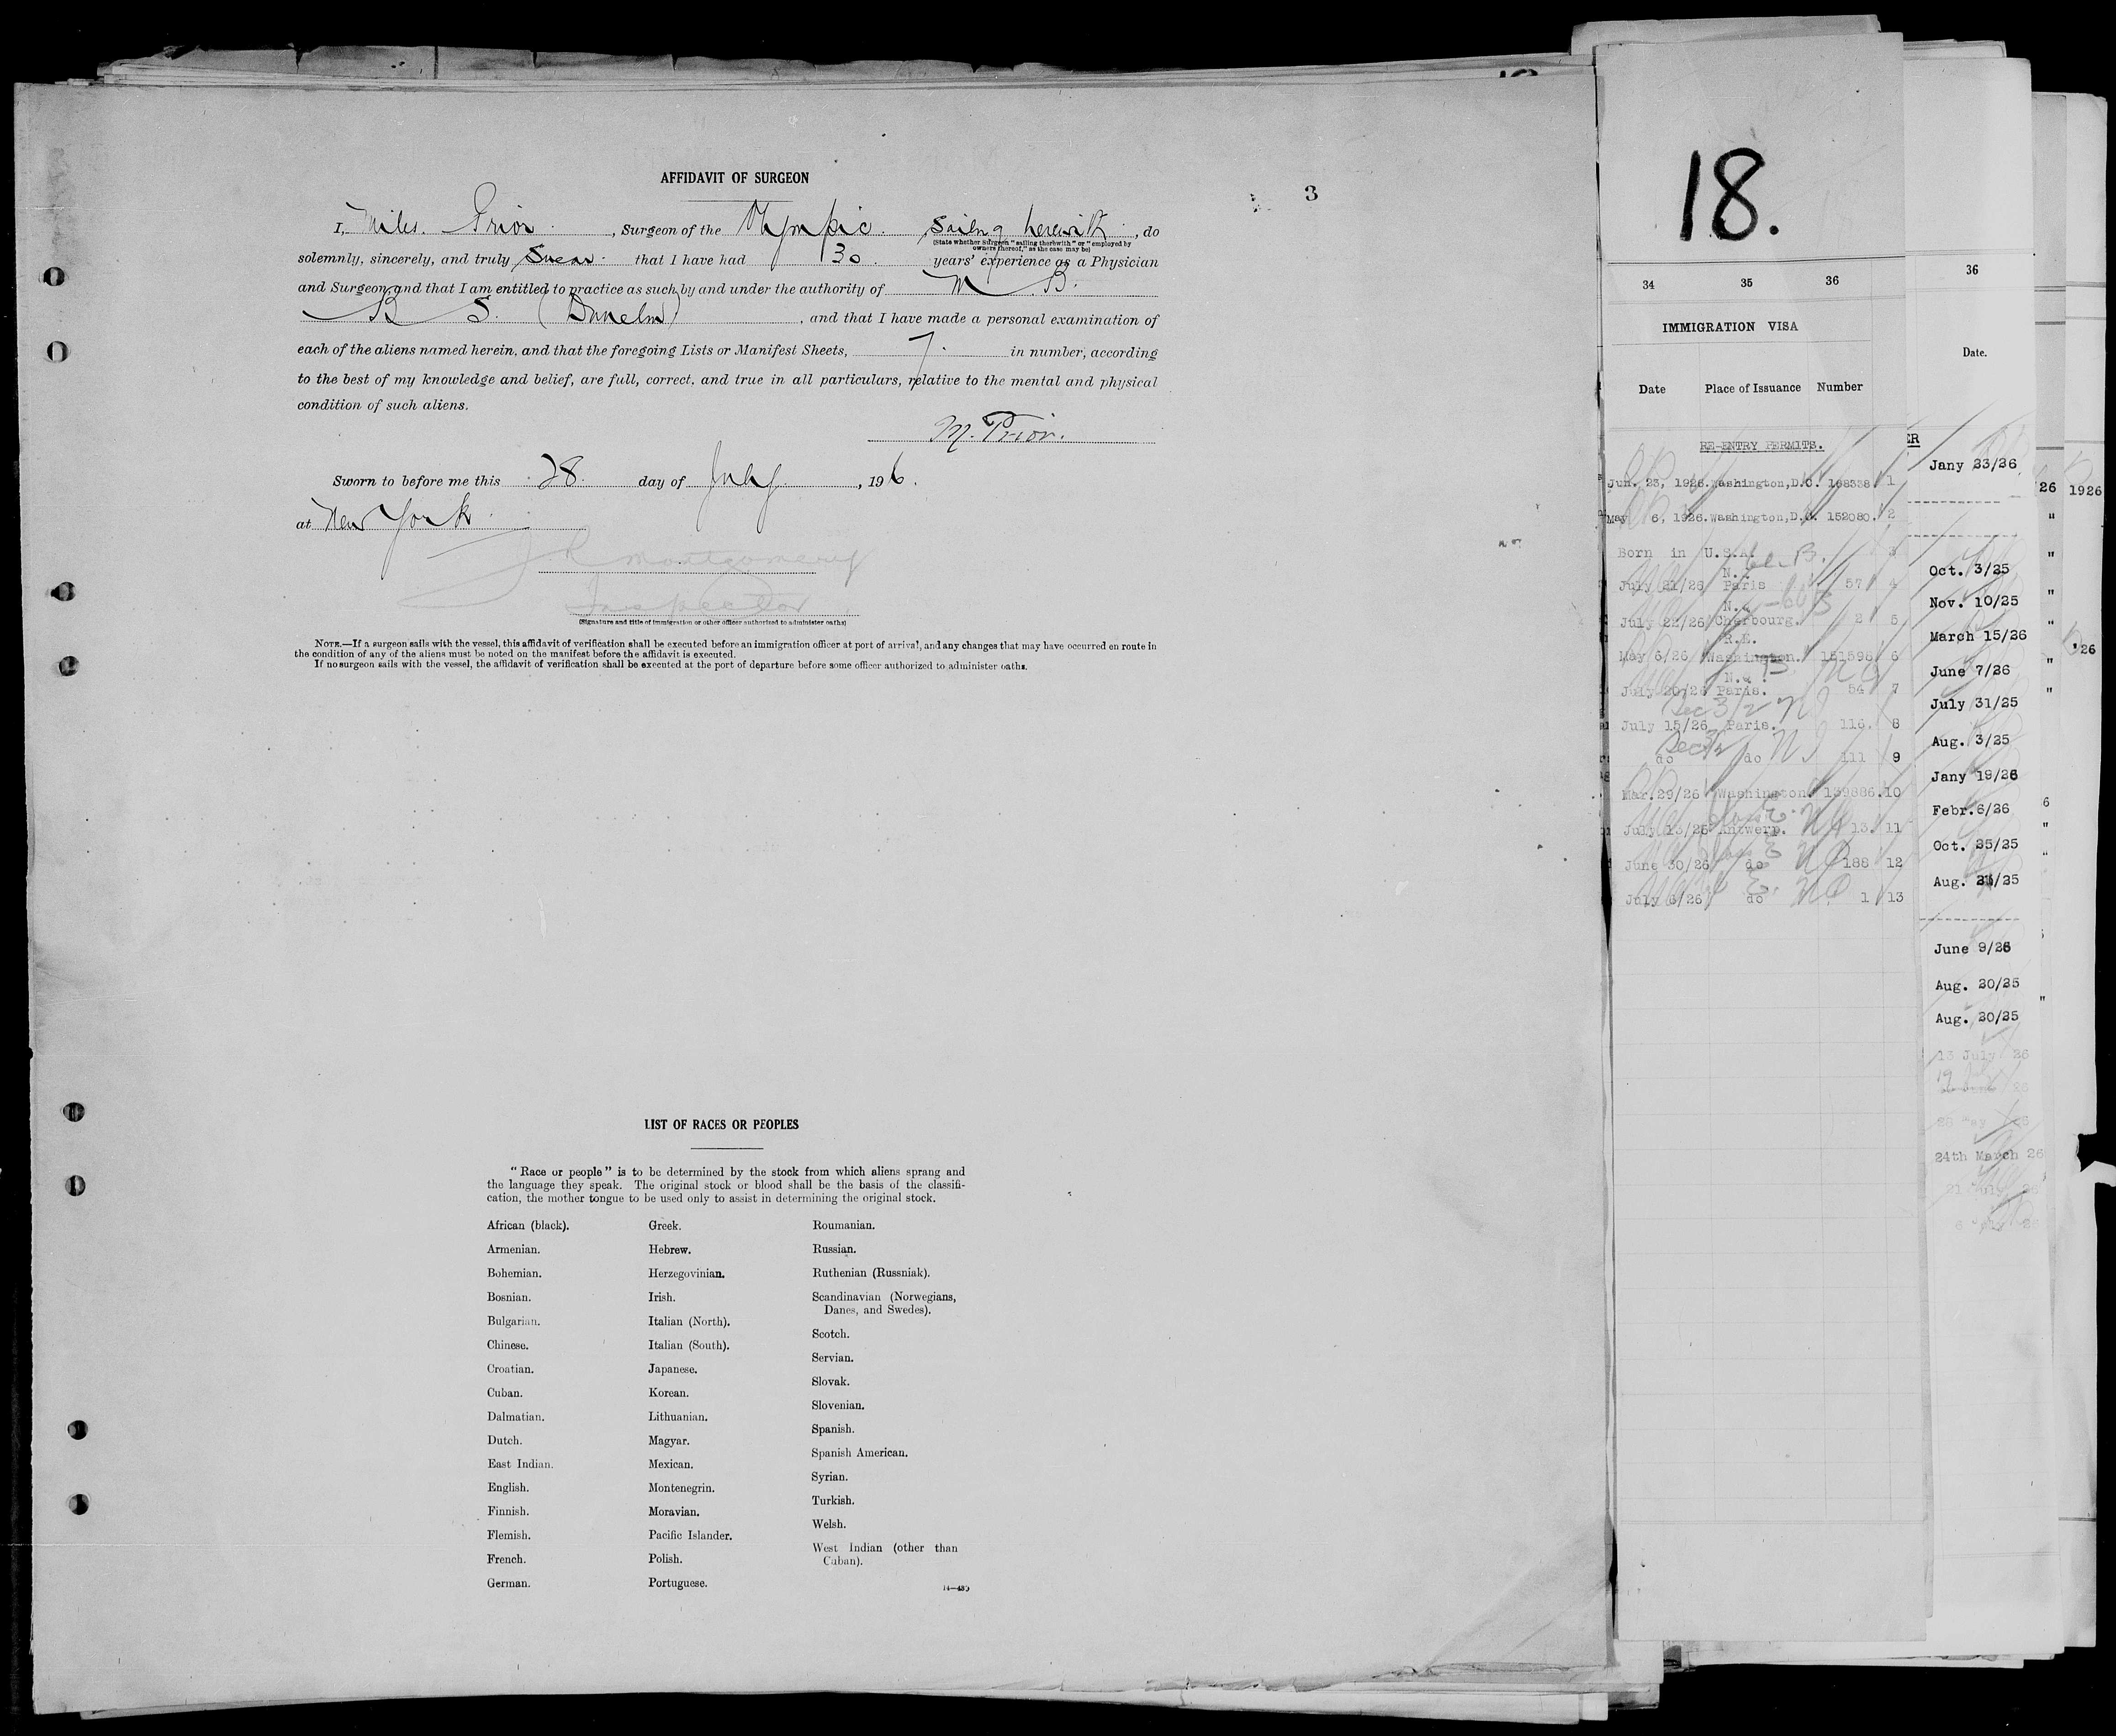 AFFIDAVIT OF SURGEON
3
I, Miles. Prior. , Surgeon of the Olympic. Sailing herewith , do
(State whether Surgeon "sailing therewith" or "employed by
owners thereof," as the case may be)
solemnly, sincerely, and truly Swear. that I have had 30. years' experience as a Physician
and Surgeon and that I am entitled to practice as such by and under the authority of M B.
B S. (Dunelm) , and that I have made a personal examination of
each of the aliens named herein, and that the foregoing Lists or Manifest Sheets, 7. in number, according
to the best of my knowledge and belief, are full, correct, and true in all particulars, relative to the mental and physical
condition of such aliens.
M. Prior.
Sworn to before me this 28. day of July. , 19 6.
at New York.
J R Montgomery
Inspector
(Signature and title of immigration or other officer authorized to administer oaths)
NOTE.—If a surgeon sails with the vessel, this affidavit of verification shall be executed before an immigration officer at port of arrival, and any changes that may have occurred en route in
the condition of any of the aliens must be noted on the manifest before the affidavit is executed.
If no surgeon sails with the vessel, the affidavit of verification shall be executed at the port of departure before some officer authorized to administer oaths.
LIST OF RACES OR PEOPLES
"Race or people" is to be determined by the stock from which aliens sprang and
the language they speak. The original stock or blood shall be the basis of the classifi-
cation, the mother tongue to be used only to assist in determining the original stock.
African (black).
Armenian.
Bohemian.
Bosnian.
Bulgarian.
Chinese.
Croatian.
Cuban.
Dalmatian.
Dutch.
East Indian.
English.
Finnish.
Flemish.
French.
German.
Greek.
Hebrew.
Herzegovinian.
Irish.
Italian (North).
Italian (South).
Japanese.
Korean.
Lithuanian.
Magyar.
Mexican.
Montenegrin.
Moravian.
Pacific Islander.
Polish.
Portuguese.
Roumanian.
Russian.
Ruthenian (Russniak).
Scandinavian (Norwegians,
Danes, and Swedes).
Scotch.
Servian.
Slovak.
Slovenian.
Spanish.
Spanish American.
Syrian.
Turkish.
Welsh.
West Indian (other than
Cuban).
14—430
18.
34 35 36
IMMIGRATION VISA
Date Place of Issuance Number
RE-ENTRY PERMITS.
Jun. 23, 1926. Washington, D.C. 168338 1
May 6, 1926. Washington, D.C. 152080. 2
Born in U.S.A. 3
July 21/26 Paris 57 4
July 22/26 Cherbourg. 2 5
R.E.
May 6/26 Washington. 151598 6
July 20/26 Paris. 54 7
July 15/26 Paris. 116. 8
do do 111 9
Mar. 29/26 Washington. 139886. 10
July 13/26 Antwerp. 13. 11
June 30/26 do 188 12
July 6/26 do 1 13
36
Date.
ER
Jany 23/26
Oct. 3/25
Nov. 10/25
March 15/26
June 7/26
July 31/25
Aug. 3/25
Jany 19/26
Febr. 6/26
Oct. 25/25
Aug. /25
June 9/26
Aug. 20/25
Aug. 20/25
13 July 26
24th March 26
21 July 26
6 July 26
26
1926
'26